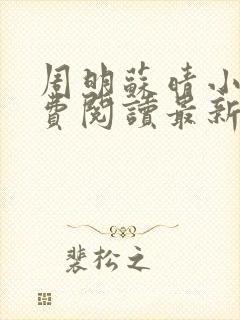 周明蘇晴小
費閱讀最新
裴松之